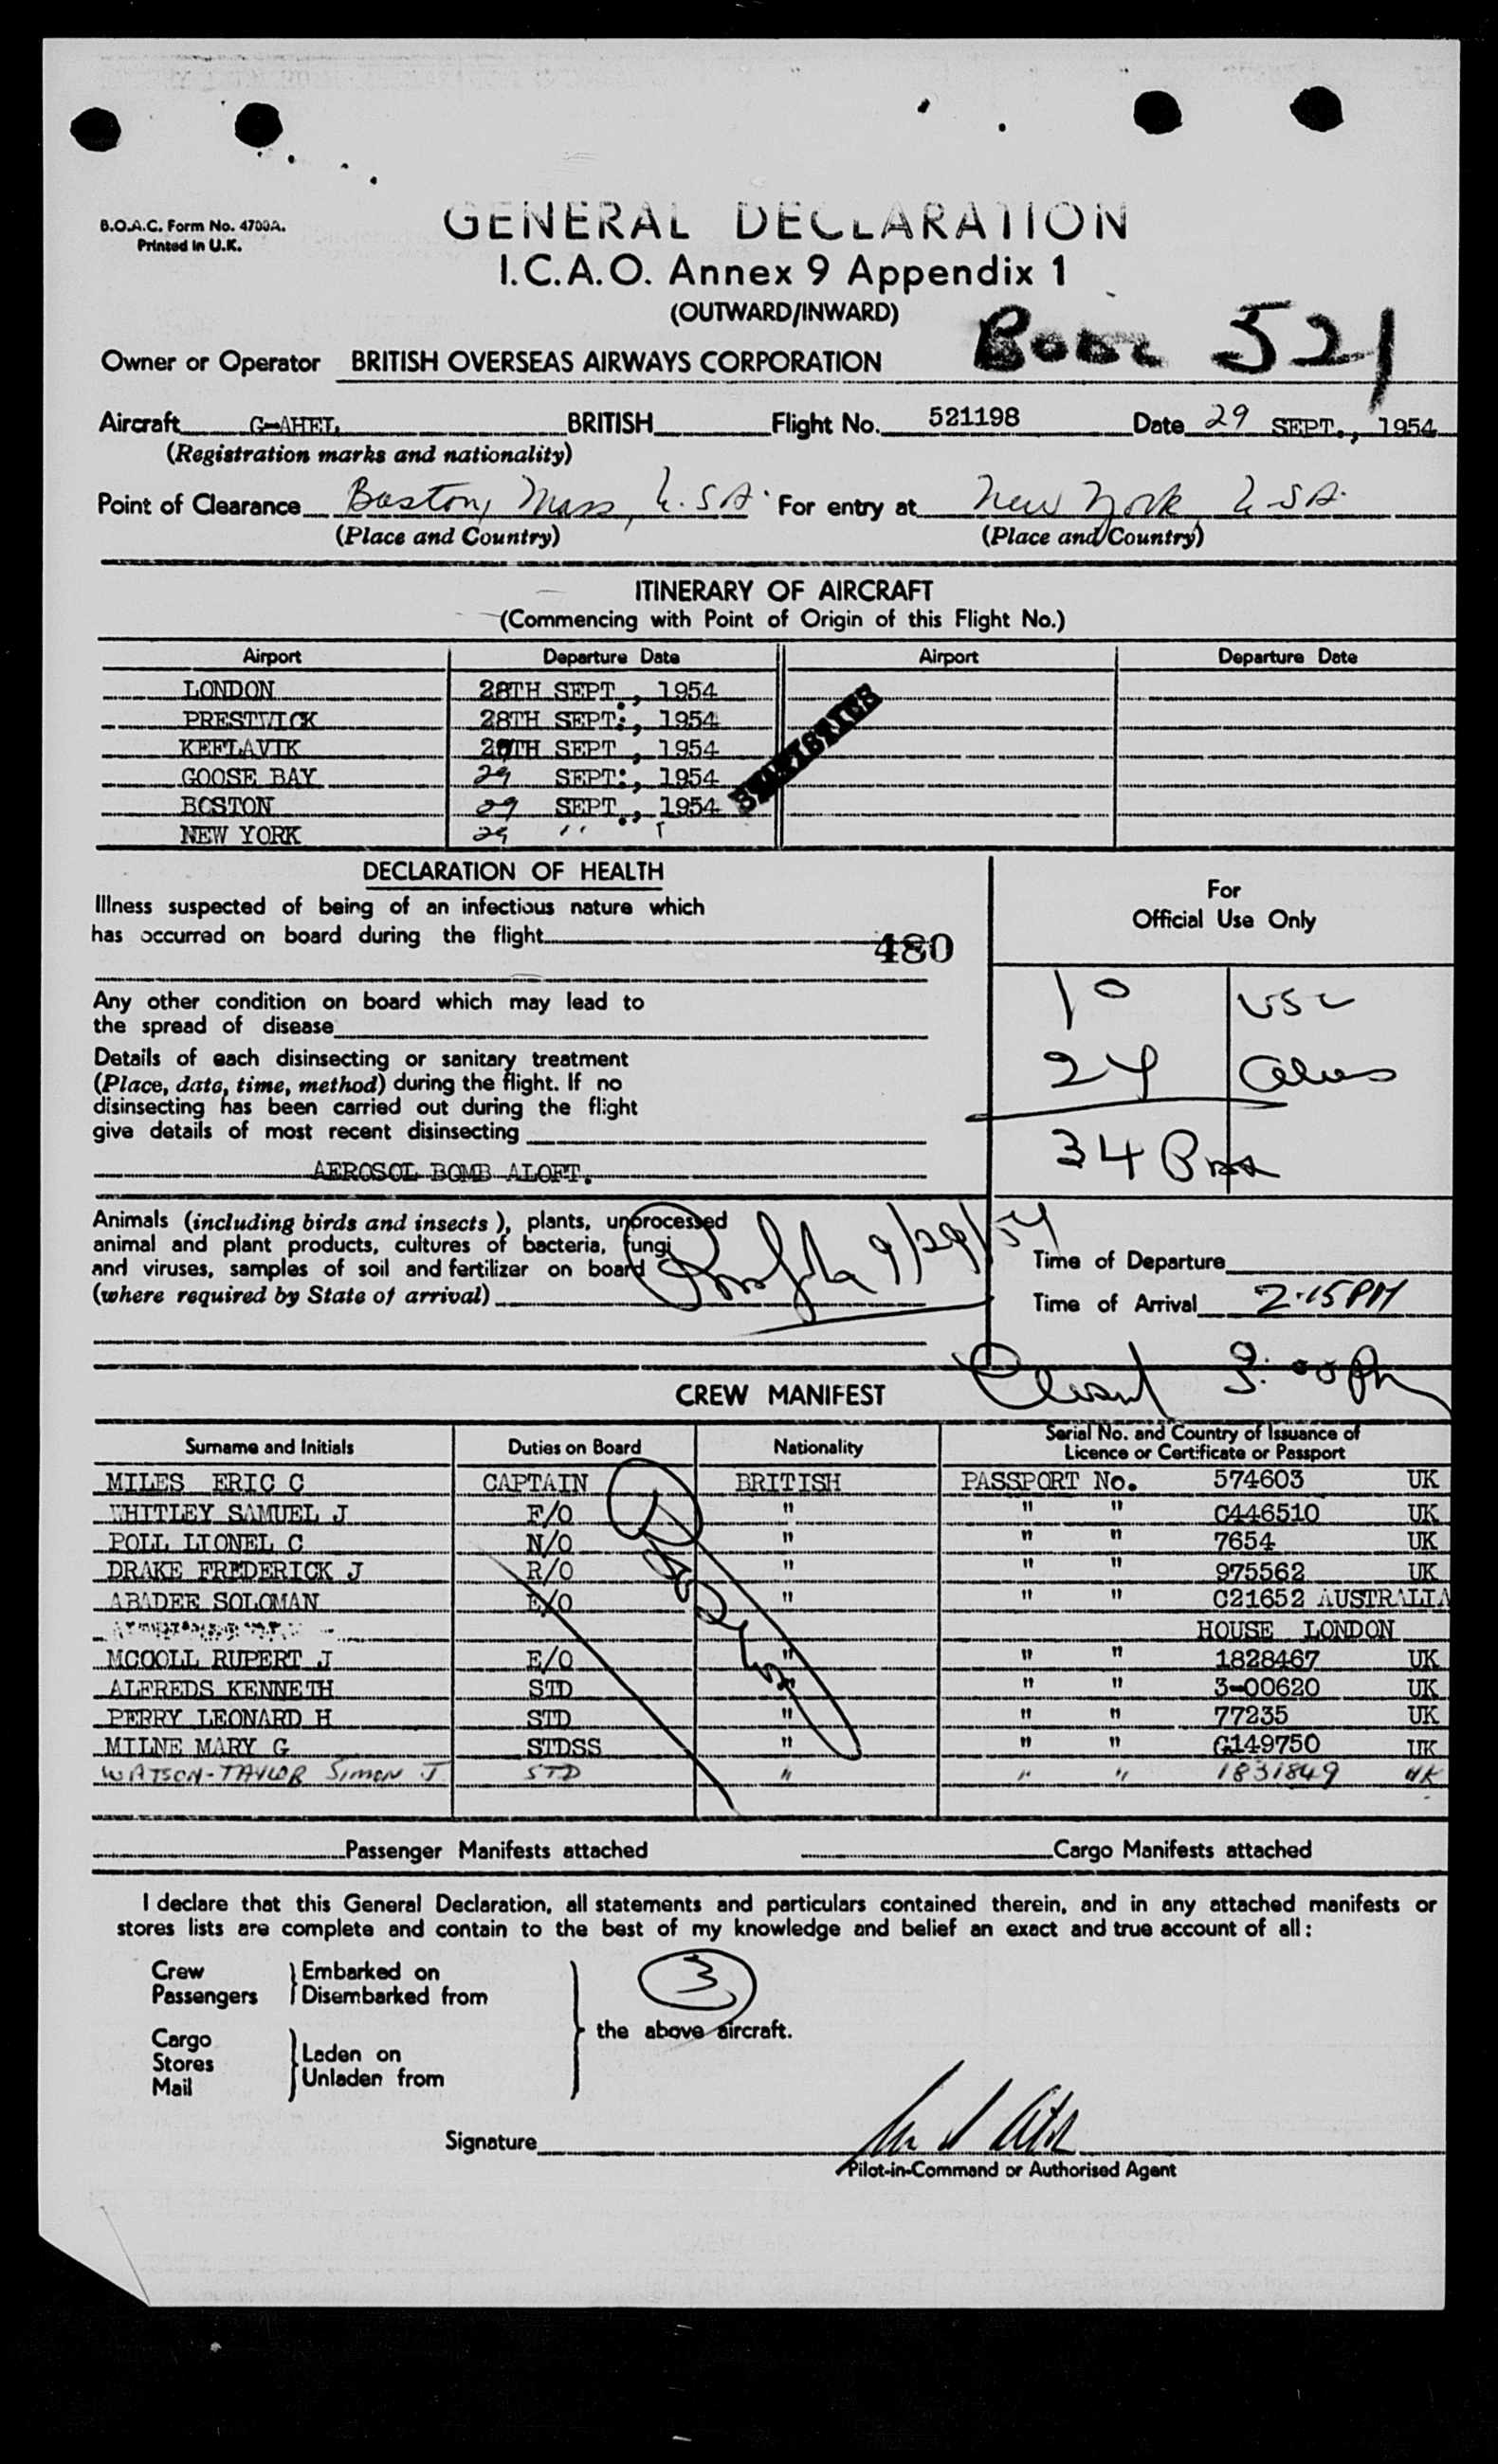 B.O.A.C. Form No. 4700A.
Printed in U.K.
GENERAL DECLARATION
I.C.A.O. Annex 9 Appendix 1
(OUTWARD/INWARD)
Owner or Operator BRITISH OVERSEAS AIRWAYS CORPORATION
521
Aircraft G-AHEL BRITISH Flight No. 521198 Date 29 SEPT., 1954
(Registration marks and nationality)
Point of Clearance Boston, Mass, U.S.A. For entry at New York, U.S.A.
(Place and Country) (Place and Country)
ITINERARY OF AIRCRAFT
(Commencing with Point of Origin of this Flight No.)
Airport Departure Date Airport Departure Date
LONDON 28TH SEPT., 1954
PRESTWICK 28TH SEPT., 1954
KEFLAVIK 29TH SEPT., 1954
GOOSE BAY 29 SEPT., 1954
BOSTON 29 SEPT., 1954
NEW YORK 29 " "
STATISTICS
DECLARATION OF HEALTH
Illness suspected of being of an infectious nature which
has occurred on board during the flight
480
Any other condition on board which may lead to
the spread of disease
Details of each disinsecting or sanitary treatment
(Place, date, time, method) during the flight. If no
disinsecting has been carried out during the flight
give details of most recent disinsecting
AEROSOL BOMB ALOFT.
For
Official Use Only
10 USC
24 Aliens
34 Pax
Animals (including birds and insects), plants, unprocessed
animal and plant products, cultures of bacteria, fungi
and viruses, samples of soil and fertilizer on board
(where required by State of arrival)
9/29/54
Time of Departure
Time of Arrival 2.15 PM
3:00 PM
CREW MANIFEST
Surname and Initials Duties on Board Nationality Serial No. and Country of Issuance of
Licence or Certificate or Passport
MILES ERIC C CAPTAIN BRITISH PASSPORT No. 574603 UK
WHITLEY SAMUEL J F/O " " " C446510 UK
POLL LIONEL C N/O " " " 7654 UK
DRAKE FREDERICK J R/O " " " 975562 UK
ABADEE SOLOMAN E/O " " " C21652 AUSTRALIA
HOUSE LONDON
MCCOLL RUPERT J E/O " " " 1828467 UK
ALFREDS KENNETH STD " " " 3-00620 UK
PERRY LEONARD H STD " " " 77235 UK
MILNE MARY G STDSS " " " G149750 UK
WATSON-TAYLOR SIMON J STD " " " 1831849 UK
Passenger Manifests attached Cargo Manifests attached
I declare that this General Declaration, all statements and particulars contained therein, and in any attached manifests or
stores lists are complete and contain to the best of my knowledge and belief an exact and true account of all:
Crew Embarked on
Passengers Disembarked from
3
the above aircraft.
Cargo
Stores Laden on
Mail Unladen from
Signature
Pilot-in-Command or Authorised Agent